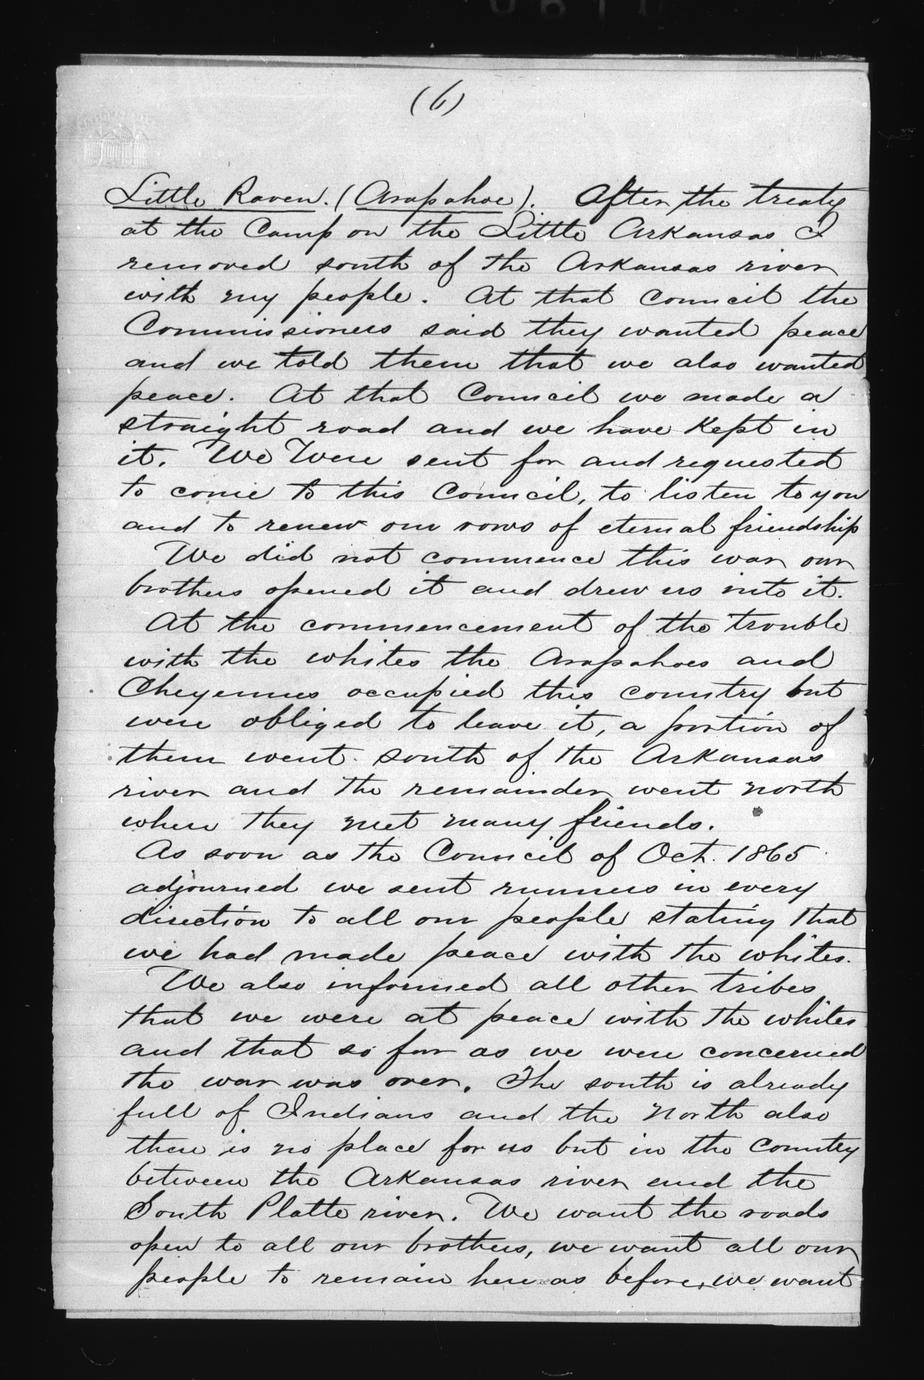 (6)
Little Raven. (Arapahoe). After the treaty
at the Camp on the Little Arkansas I
removed south of the Arkansas river
with my people. At that Council the
Commissioners said they wanted peace
and we told them that we also wanted
peace. At that Council we made a
straight road and we have kept in
it. We Were sent for and requested
to come to this Council, to listen to you
and to renew our vows of eternal friendship
We did not commence this war our
brothers opened it and drew us into it.
At the commencement of the trouble
with the whites the Arapahoes and
Cheyennes occupied this country but
were obliged to leave it, a portion of
them went south of the Arkansas
river and the remainder went north
where they met many friends.
As soon as the Council of Oct. 1865
adjourned we sent runners in every
direction to all our people stating that
we had made peace with the whites.
We also informed all other tribes
that we were at peace with the whites
and that so far as we were concerned
the war was over. The south is already
full of Indians and the North also
there is no place for us but in the Country
between the Arkansas river and the
South Platte river. We want the roads
open to all our brothers, we want all our
people to remain here as before, we want